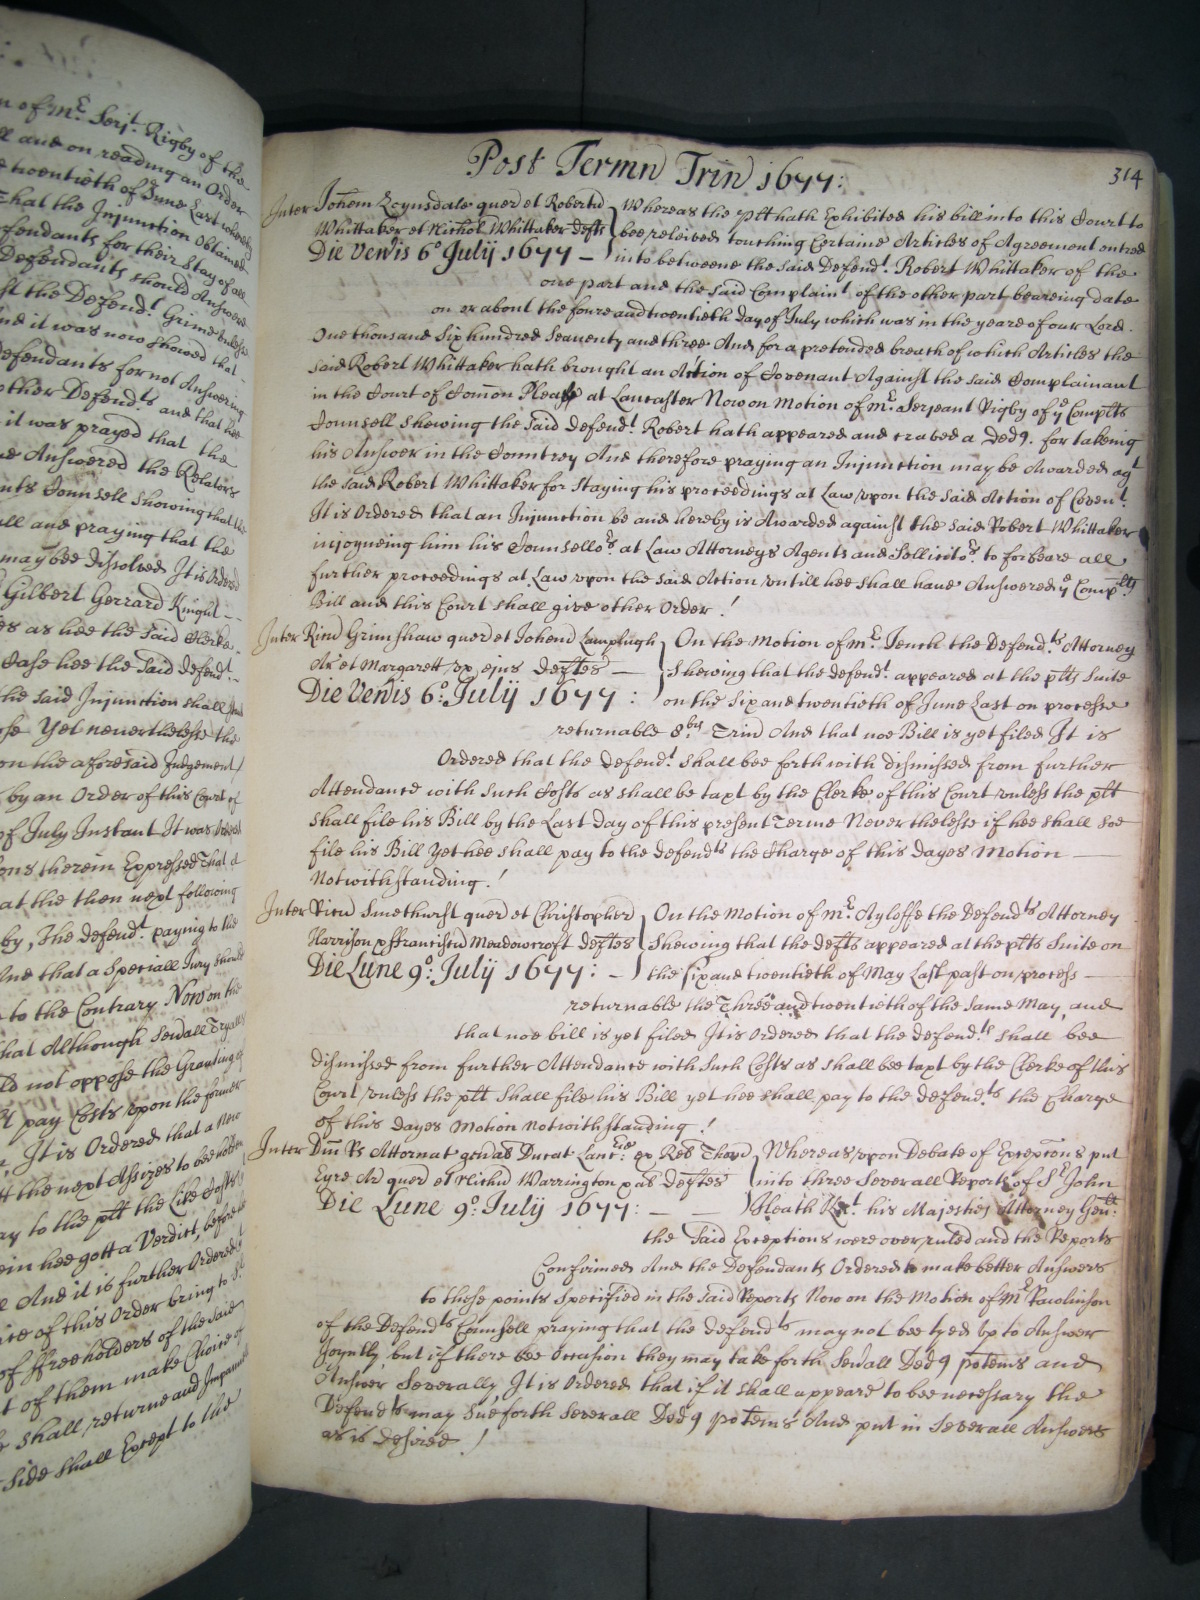 n of Mr. Serjt. Rigby of the
ll and on reading an Order
twentieth of June Last whereby
That the Injunction obtained
fendants for their Stay of all
Defendants should Answere
st the Defendt. Grimes unless
And it was now showed that
Defendants for not Answering
other Defendts. and that hee
it was prayed that the
ve Answered the Relators
nts Counsell Shewing that the
ill and praying that the
may bee dissolved It is Ordered
Gilbert Gerrard Knight
es as hee the said Clerke
Case hee the said Defendt.
the said Injunction shall
Yet neverthelesse the
on the aforesaid Judgement
by an Order of this Court of
of July Instant It was
ons therein Expressed That a
at the then next following
by, The Defendt. paying to the
And that a Speciall Jury should
to the Contrary Now on the
that Although Sevall Tryalls
ld not oppose the Granting of
pay Costs upon the former
It is Ordered that a New
tt the next Assizes to bee
ay to the plt the like Costs
ein hee gott a Verdict, before
And it is further Ordered
ice of this Order bring to
of ffreeholders of the said
t of them make Choice of
shall returne and
side shall Except to the
Post Termn Trin 1677:
314
Inter Johem Loynsdale quer et Robertu
Whittaker et Nichol Whittaker defts
Die Ven'is 6o Julij 1677 –
Whereas the plt hath Exhibited his bill into this Court to
bee releived touching Certaine Articles of Agreement entred
into betweene the said Defendt. Robert Whittaker of the
one part and the said Complaint. of the other part beareing date
on or about the foure and twentieth day of July which was in the yeare of our Lord
One thousand Six hundred Seaventy and three And for a pretended breach of which Articles the
said Robert Whittaker hath brought an Action of Covenant Against the said Complainant
in the Court of Comon Pleas at Lancaster Now on Motion of Mr. Serjeant Rigby of ye Complts
Counsell Shewing the said Defendt. Robert hath appeared and craved a Ded9. for takeing
his Answer in the Countrey And therefore praying an Injunction may be Awarded agt
the said Robert Whittaker for Staying his proceedings at Law upon the said Action of Covent.
It is Ordered that an Injunction be and hereby is Awarded against the said Robert Whittaker
injoyneing him his Counsellors. at Law Attorneys Agents and Sollicitors. to forbeare all
further proceedings at Law upon the said Action untill hee shall have Answered ye Complts
Bill and this Court shall give other Order!
Inter Ricu Grimshaw quer et Johem Lamplugh
Ar' et Margarett ux ejus Deftes –
Die Ven'is 6o: Julij 1677:
On the Motion of Mr. Tench the Defendts. Attorney
Shewing that the defendt. appeared at the plts Suite
on the Six and twentieth of June Last on processe
returnable 8.bis Trin And that noe Bill is yet filed It is
Ordered that the Defendt. shall bee forthwith dismissed from further
Attendance with Such Costs as shall be taxt by the Clerke of this Court unless the plt
shall file his Bill by the Last Day of this present Terme Neverthelesse if hee shall soe
file his Bill Yet hee shall pay to the Defendts the Charge of this dayes Motion –
Notwithstanding!
Inter Ricu Smethurst quer et Christopher
Harrison et ffranciscu Meadowcroft Deftes
Die Lune 9o: Julij 1677: –
On the Motion of Mr. Ayloffe the Defendts Attorney
Shewing that the Defts appeared at the plts Suite on
the six and twentieth of May Last past on process –
returnable the Three and twentieth of the same May, and
that noe bill is yet filed It is Ordered that the Defend.ts shall bee
dismissed from further Attendance with Such Costs as shall bee taxt by the Clerke of this
Court unless the plt Shall file his Bill yet hee shall pay to the defend.ts the Charge
of this dayes Motion notwithstanding!
Inter Dm Rs Attornat Ducat Lancrie: ex Rel
Eyre Ar' quer et Richu Warrington Deftes
Die Lune 9o: Julij 1677: – –
Whereas upon Debate of Excepcons put
into three Severall Reports of Sr John
Heath Knt. his Majesties Attorney Genll:
the Said Exceptions were overruled and the Reports
Confirmed And the Defendants Ordered to make better Answers
to those points Specified in the said Reports Now on the Motion of Mr Rawlinson
of the Defendts Counsell praying that the defendts may not bee tyed up to Answer
Joyntly but if there bee Occasion they may take forth Sevall Ded9 potems and
Answer Severally, It is Ordered that if it shall appeare to bee necessary the
Defendts may Sue forth Severall Ded9 potems And put in Severall Answers
as is desired!